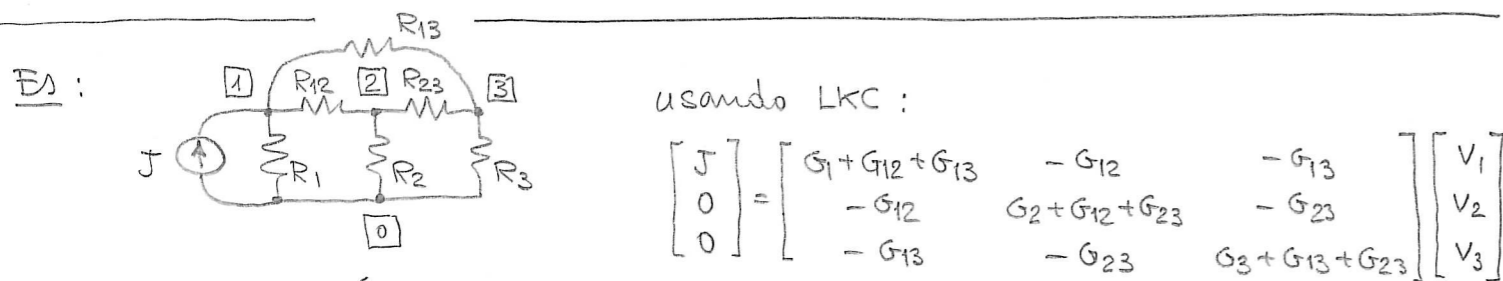 Es :
R13
1 R12 2 R23 3
J R1 R2 R3
0
usando LKC :
[ J ] = [ G1+G12+G13 -G12 -G13 ] [ V1 ]
[ 0 ] [ -G12 G2+G12+G23 -G23 ] [ V2 ]
[ 0 ] [ -G13 -G23 G3+G13+G23 ] [ V3 ]